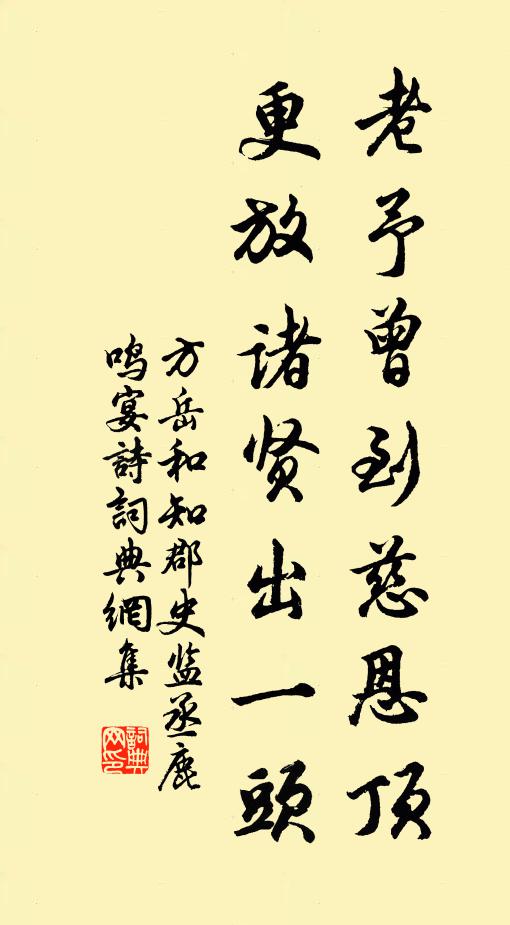 老予曾到慈恩顶
更放诸贤出一頭
方岳和知郡史监丞鹿
鸣宴詩詞典網集
詞典網印